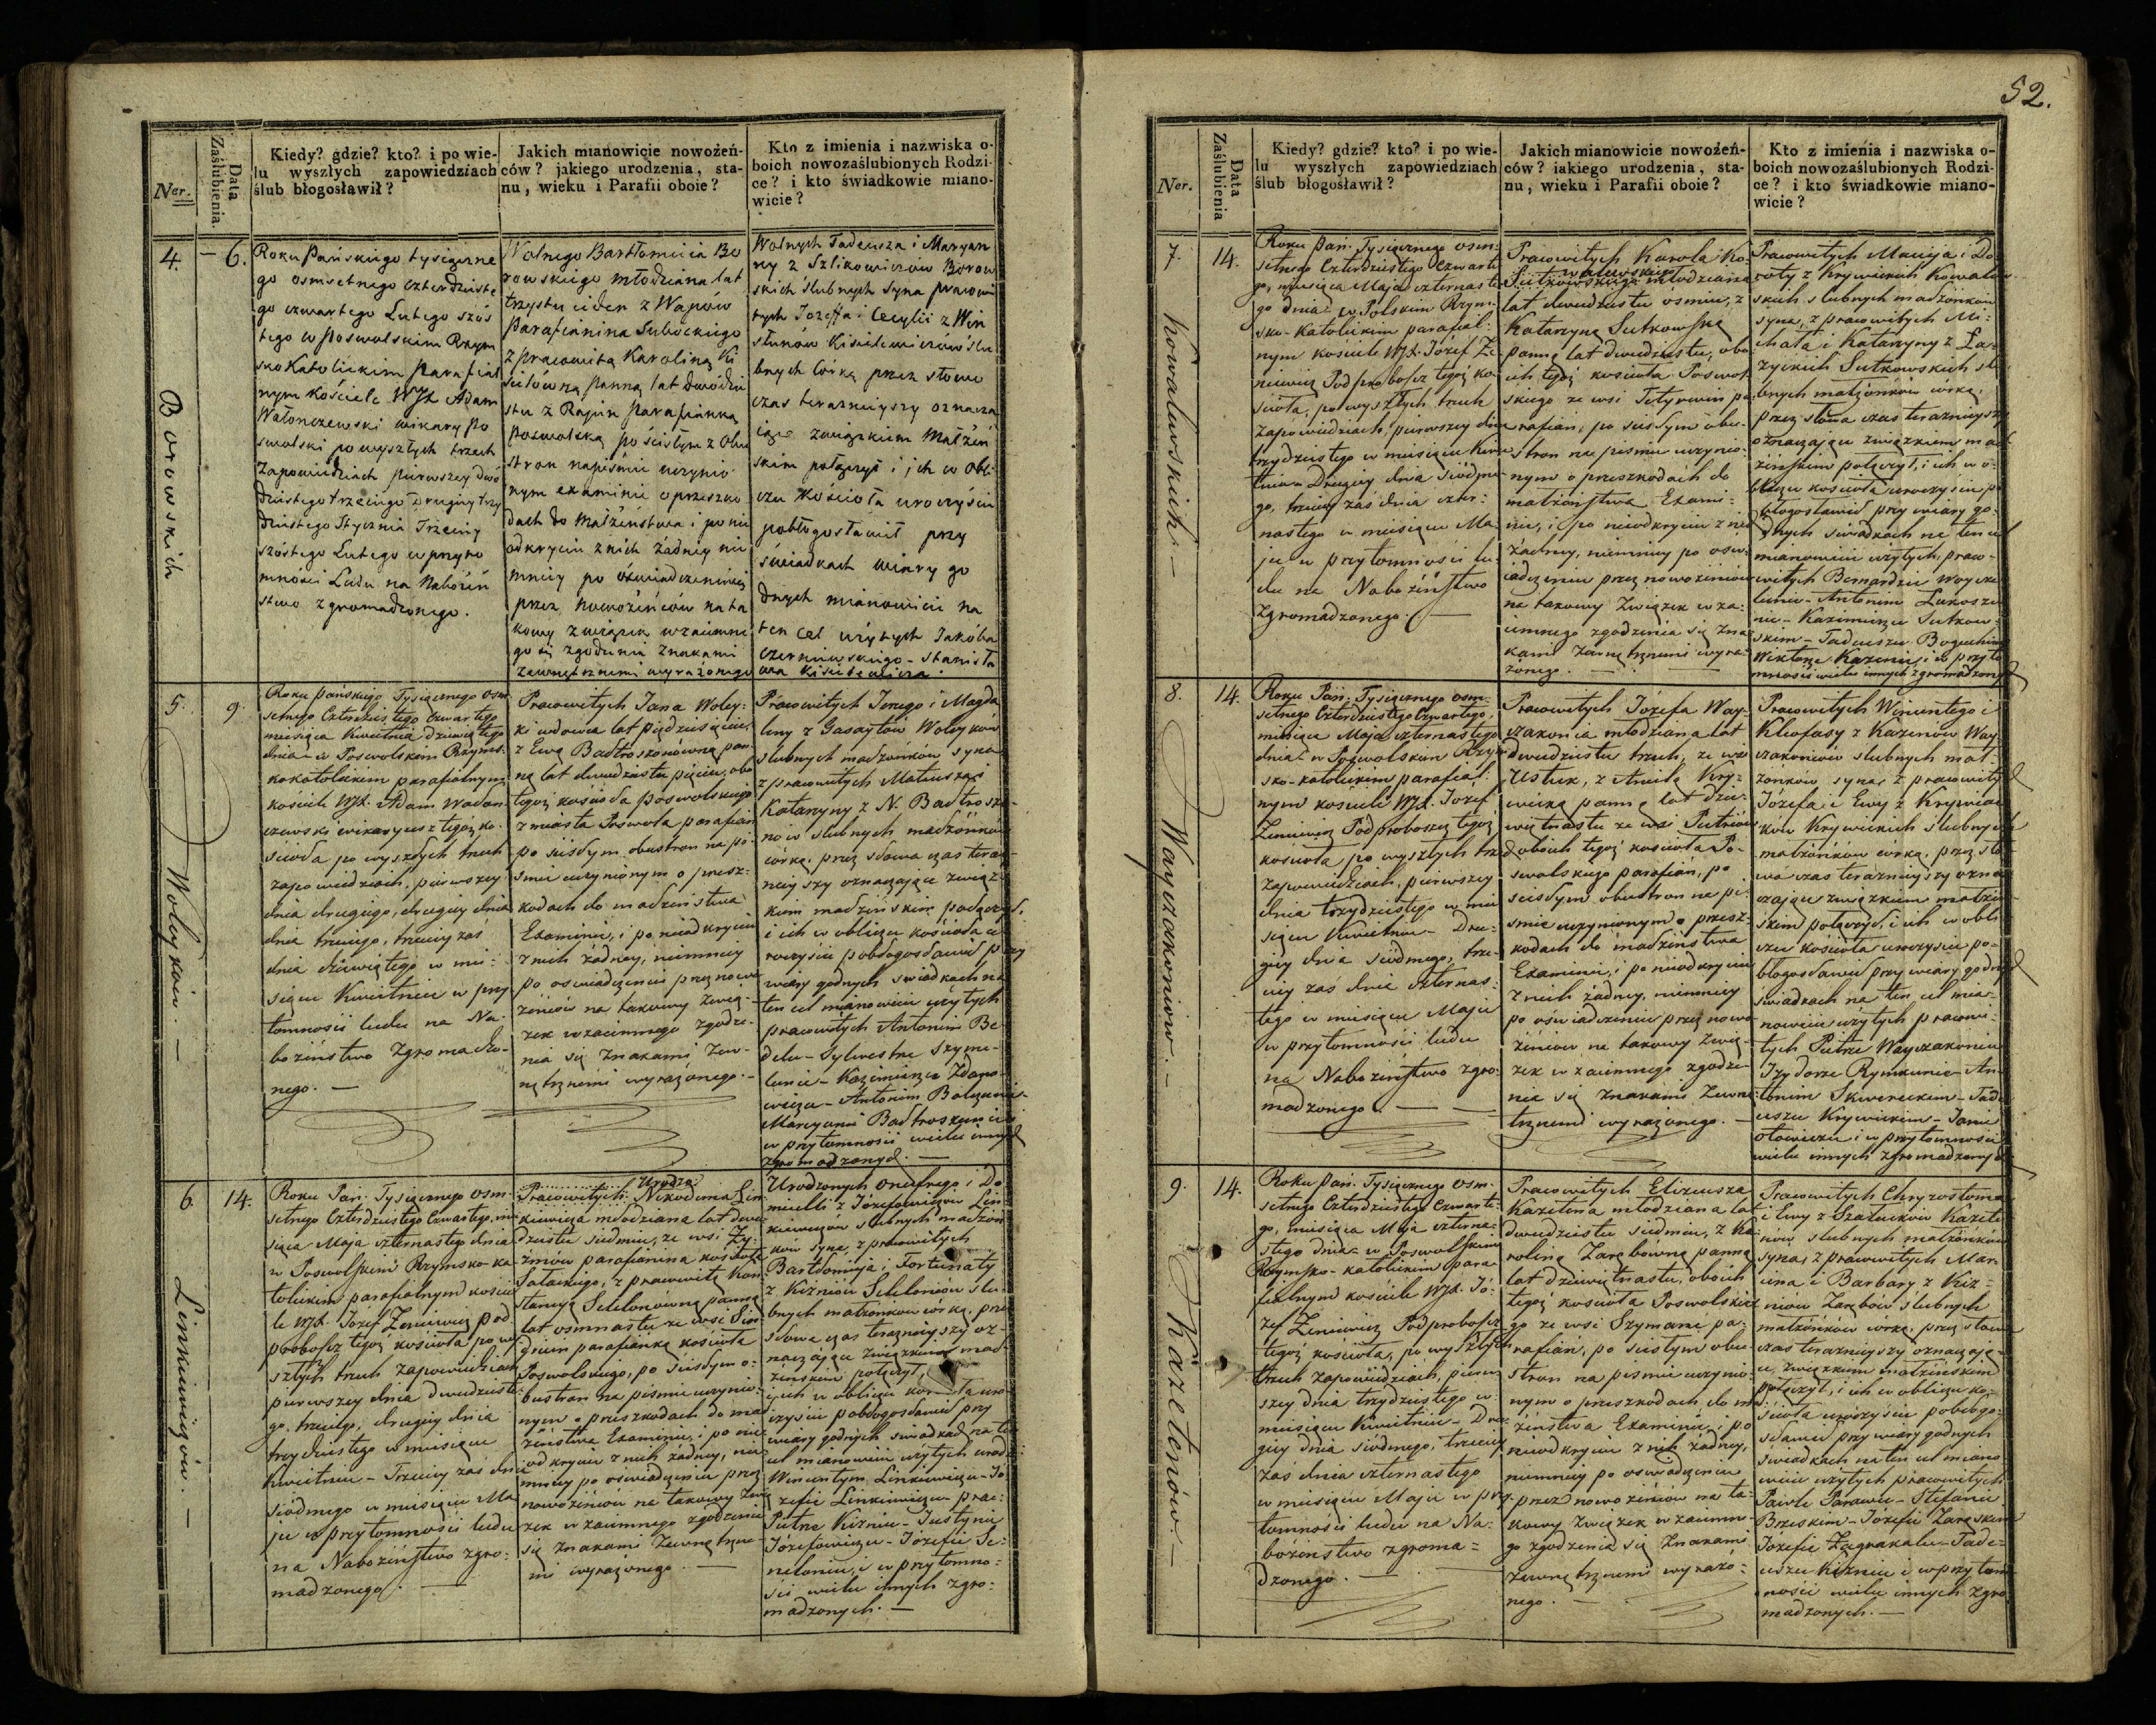 52.
Ner.
Data Zaślubienia.
Kiedy? gdzie? kto? i po wie-
lu wyszłych zapowiedziach
ślub błogosławił?
Jakich mianowicie nowożeń-
ców? jakiego urodzenia, sta-
nu, wieku i Parafii oboie?
Kto z imienia i nazwiska o-
boich nowozaślubionych Rodzi-
ce? i kto świadkowie miano-
wicie?
4.
— 6.
Borowskich
Roku Pańskiego tysiączne
go osmsetnego czterdzieste
go czwartego Lutego szós
tego w Poswolskim Rzym
sko Katolickim Parafial
nym Kościele WJX Adam
Wałonczewski wikary Po
swolski po wyszłych trzech
Zapowiedziach pierwszey dwó
dziestego trzeciego Drugiey trzy
dziestego Stycznia Trzeciey
szóstego Lutego w przyto
mności Ludu na Nabożeń
stwo zgromadzonego.
Wolnego Bartłomieia Bo
rowskiego młodziana lat
trzystu ieden z Wapów
Parafianina Subockiego
z pracowitą Karoliną Ki
sielówną panną lat dwódzie
stu z Rajun parafianką
Poswolską po ścisłym z obu
stron napiśmie uczynio
nym examinie o przeszko
dach do Małżeństwa i po nie
odkryciu z nich żadney nie
mniey po oświadczeniu
przez Nowożeńców na ta
kowy związek wzaiemne
go się zgodzenia znakami
zewnętrznemi wyrażonego
Wolnych Tadeusza i Maryan
ny z Szlikowiczów Borow
skich ślubnych Syna pracowi
tych Jozefa i Cecylii z Win
słunów Kisielewiczów ślu
bnych córkę przez słowa
czas teraznieyszy oznacza
iące związkiem Małżeń
skim połączył i ich w Obli
czu Kościoła uroczyście
pobłogosławił przy
świadkach wiary go
dnych mianowicie na
ten cel użytych Jakóba
Czerniewskiego - Stanisła
wa Kisielewicza.
5.
9.
Woleykow. —
Roku Pańskiego Tysiącznego osm
setnego Czterdziestego czwartego
miesiąca Kwietnia dziewiątego
dnia w Poswolskim Rzyms-
kokatolickim parafialnym
kościele WJX. Adam Wadon
czewski wikaryusz tegoż ko-
ścioła po wyszłych trzech
zapowiedziach, pierwszey
dnia drugiego, drugiey dnia
dnia trzeciego, trzeciey zas
dnia dziewiątego w mie-
siącu Kwietniu w przy
tomności ludu na Na-
bożeństwo zgromadzo-
nego. —
Pracowitych Jana Woley-
ki wdowca lat pięćdziesięciu,
z Ewą Bałtroszonówną pan-
ną lat dwudziestu pięciu, obu
tegoż kościoła poswolskiego
z miasta Poswola parafian
po ścisłym obustron na pi-
smie uczynionym o przesz-
kodach do małżeństwa
Examinie, i po nieodkryciu
z nich żadney, niemniey
po oswiadczeniu przez nowo
żeńców na takowy Zwią-
zek wzaiemnego zgodze-
nia się znakami zew-
nętrznemi wyrażonego. —
Pracowitych Jerzego i Magda
leny z Gasaytów Woleyków
ślubnych małżonków syna
z pracowitych Mateusza i
Katarzyny z N. Bałtrosze-
now ślubnych małżonków
córkę, przez słowa czas teraz-
nieyszy oznaczające związ-
kiem małżeńskim połączył,
i ich w obliczu kościoła u
roczyście pobłogosławił przy
wiary godnych świadkach na
ten cel mianowicie użytych
pracowitych Antonim Be
delu - Sylwestrze Szyme-
luniu - Kazimierzu Zdano-
wiczu - Antonim Bałczunie -
Marcyanie Bałtroszunie i
w przytomności wielu innych
zgromadzonych. —
6
14.
Linkiewiczów. —
Roku Pań. Tysiącznego osm-
setnego Czterdziestego Czwartego, mie
siąca Maja czternastego dnia
w Poswolskim Rzymsko-ka
tolickim parafialnym kościo
le WJX. Józef Zeniewicz Pod
proboszcz tegoż kościoła po wy
szłych trzech zapowiedziach
pierwszey dnia dwudzieste-
go trzeciego, drugiey dnia
trzydziestego w miesiącu
Kwietniu - Trzeciey zas dnia
siódmego w miesiącu Ma
ju w przytomności ludu
na Nabożeństwo zgro-
madzonego. —
Urodzo:
Pracowitych Nikodema Lin
kiewicza młodziana lat dwu
dziestu siedmiu, ze wsi Zy-
żniów parafianina kościoła
Sałackiego, z pracowitą Kon
stancyą Sełelonówną panną
lat osmnastu ze wsi Gie
dniun parafianką kościoła
Poswolskiego, po ścisłym o-
bustron na pismie uczynio-
nym o przeszkodach do mał
żeństwa Examinie, i po nie
odkryciu z nich żadney, nie
mniey po oświadczeniu przez
nowożeńców na takowy Zwią
zek wzaiemnego zgodzenia
się znakami Zewnętrzne
mi wyrażonego. —
Urodzonych Onufrego i Do
micelli z Józefowiczów Lin
kiewiczów ślubnych małżon
ków syna, z pracowitych
Bartłomieja i Fortunaty
z Kiżniów Sełelonów ślu-
bnych małżonków córkę, przez
słowa czas teraznieyszy oz-
naczające związkiem mał
żeńskim połączył,
i ich w obliczu kościoła uro
czyście pobłogosławił przy
wiary godnych świadkach na ten
cel mianowicie użytych urodz:
Wincentym Linkiewiczu - Jó
zefie Linkiewiczu - prac:
Piotrze Kiżniu - Justynie
Józefowiczu - Józefie Se-
nelaniu, i w przytomno-
ści wielu innych zgro-
madzonych. —
Ner.
Data Zaślubienia
Kiedy? gdzie? kto? i po wie-
lu wyszłych zapowiedziach
ślub błogosławił?
Jakich mianowicie nowożeń-
ców? iakiego urodzenia, sta-
nu, wieku i Parafii oboie?
Kto z imienia i nazwiska o-
boich nowozaślubionych Rodzi-
ce? i kto świadkowie miano-
wicie?
7.
14.
Kowalewskich. —
Roku Pań. Tysiącznego osm-
setnego Czterdziestego Czwarte
go, miesiąca Maja czternaste
go dnia w Polskim Rzym-
sko-Katolickim parafial-
nym kościele WJX. Józef Ze
niewicz Podproboszcz tegoż ko-
ścioła, po wyszłych trzech
zapowiedziach, pierwszey dnia
trzydziestego w miesiącu Kwie
tniu - Drugiey dnia siódme
go, trzeciey zaś dnia czter-
nastego w miesiącu Ma
ju w przytomności lu-
du na Nabożeństwo
Zgromadzonego. —
Pracowitych Karola Ko-
walewskiego
Sutkowskiego młodziana
lat dwudziestu ósmiu, z
Katarzyną Sutkowską
panną lat dwudziestu, obo
ich tegoż kościoła Poswol
skiego ze wsi Tetyrwin pa
rafian, po ścisłym obu-
stron na pismie uczynio-
nym o przeszkodach do
małżeństwa Exami-
nie, i po nieodkryciu z nich
żadney, niemniey po oswi-
adczeniu przez nowożeńców
na takowy Związek wza-
iemnego zgodzenia się zna-
kami Zewnętrznemi wyra-
żonego. —
Pracowitych Macieja i Do
roty z Krywickich Kowalew
skich ślubnych małżonków
syna, z pracowitych Mi-
chała i Katarzyny z Ła-
życkich Sutkowskich ślu
bnych małżonków córkę,
przez słowa czas teraznieyszy
oznaczające związkiem mał
żeńskim połączył, i ich w o-
bliczu kościoła uroczyście po
błogosławił przy wiary go-
dnych świadkach na ten cel
mianowicie użytych, praco-
witych Bernardzie Woycze
luniu - Antonim Lukosze
niu - Kazimierzu Sutkow-
skim - Tadeuszu Boguckim
Wiktorze Kazeniu, i w przyto
mności wielu innych zgromadzonych
8.
14.
Wayszakoniow. —
Roku Pań. Tysiącznego osm-
setnego Czterdziestego Czwartego,
miesiąca Maja czternastego
dnia w Poswolskim Rzym
sko-katolickim parafial-
nym kościele WJX. Józef
Zeniewicz Podproboszcz tegoż
kościoła po wyszłych trz
zapowiedziach, pierwszey
dnia trzydziestego w mie
siącu Kwietniu - Dru-
giey dnia siódmego, trze-
ciey zaś dnia czternas-
tego w miesiącu Maju
w przytomności ludu
na Nabożeństwo zgro-
madzonego. —
Pracowitych Józefa Way-
szakonia młodziana lat
dwudziestu trzech, ze wsi
Ustuk, z Anielą Kry-
wicką panną lat dzie-
więtnastu ze wsi Putriów
oboich tegoż kościoła Po-
swolskiego parafian, po
ścisłym obustron na pi-
smie uczynionym o przesz-
kodach do małżeństwa
Examinie, i po nieodkryciu
z nich żadney, niemniey
po oświadczeniu przez nowo
żeńców na takowy Zwią-
zek wzaiemnego zgodze-
nia się znakami Zewnę-
trznemi wyrażonego. —
Pracowitych Wincentego i
Kleofasy z Kazenów Way
szakoniów ślubnych mał-
żonków syna, z pracowitych
Józefa i Ewy z Krywiac
ków Krywickich ślubnych
małżonków córkę, przez sło
wa czas teraznieyszy ozna
czające związkiem małżeń
skim połączył, i ich w obli
czu kościoła uroczyście po-
błogosławił przy wiary godnych
świadkach na ten cel mia-
nowicie użytych pracowi-
tych Piotrze Wayszakoniu
Izydorze Rymkunie - An
tonim Skwereckim - Tade
uszu Krywickim - Janie
Otowiczu i w przytomności
wielu innych zgromadzonych
9.
14.
Kazelenów. —
Roku Pań. Tysiącznego osm-
setnego Czterdziestego Czwarte-
go, miesiąca Maja czterna-
stego dnia w Poswolskim
Rzymsko-katolickim para
fialnym kościele WJX. Jó-
zef Zeniewicz Podproboszcz
tegoż kościoła, po wyszłych
trzech zapowiedziach, pierw
szey dnia trzydziestego w
miesiącu Kwietniu - Dru-
giey dnia siódmego, trzeciey
zaś dnia czternastego
w miesiącu Maju w przy-
tomności ludu na Na-
bożeństwo zgroma-
dzonego. —
Pracowitych Elizeusza
Kazelena młodziana lat
dwudziestu siedmiu, z Ka
roliną Zarębówną panną
lat dziewiętnastu, oboich
tegoż kościoła Poswolskie
go ze wsi Szymane pa-
rafian, po ścisłym obu
stron na pismie uczynio-
nym o przeszkodach do mał
żeństwa Examinie, i po
nieodkryciu z nich żadney,
niemniey po oswiadczeniu
przez nowożeńców na ta-
kowy Związek wzaiemne-
go zgodzenia się Znakami
Zewnętrznemi wyrażo-
nego. —
Pracowitych Chryzostoma
i Ewy z Szałuckow Kazele
nów ślubnych małżonków
syna, z pracowitych Mar-
cina i Barbary z Kiż-
niów Zarębów ślubnych
małżonków córkę, przez słowa
czas teraznieyszy oznaczają-
ce, związkiem małżeńskim
połączył, i ich w obliczu ko-
ścioła uroczyście pobłogo-
sławił przy wiary godnych
świadkach na ten cel miano-
wicie użytych pracowitych
Pawle Parawie - Stefanie
Brzeskim - Józefie Zaręskim
Józefie Zagrakalu - Tade-
uszu Kiżniu i w przytom
ności wielu innych zgro
madzonych. —